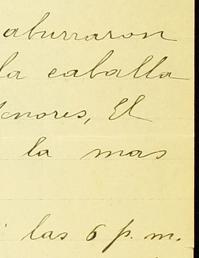 aburraron
la caballa
enores, El
la mas
las 6 p. m.